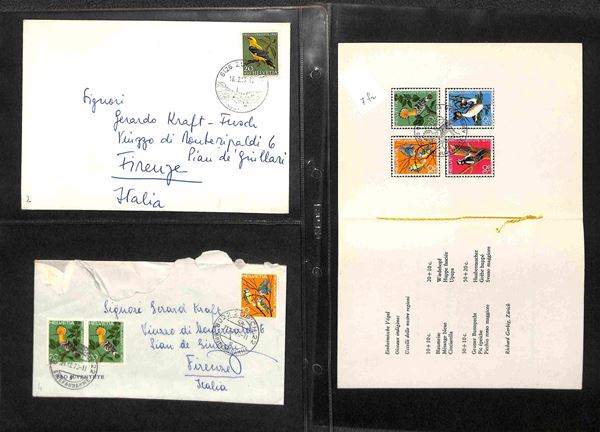 20 HELVETIA
Signori
Gerardo Kraft-Fusch
Viuzzo di Monteripaldi 6
Pian de' Giullari
Firenze
Italia
2
HELVETIA
20
PRO JUVENTUTE
Signore Gerard Kraft
Viuzzo di Monteripaldi 6
Pian de Giullari
Firenze
Italia
7 fr
Einheimische Vögel
Oiseaux indigènes
Uccelli delle nostre regioni
10+10 c.
Blaumeise
Mésange bleue
Cinciarella
20+10 c.
Wiedehopf
Huppe fasciée
Upupa
30+10 c.
Grosser Buntspecht
Pic épeiche
Picchio rosso maggiore
50+20 c.
Haubentaucher
Grèbe huppé
Svasso maggiore
Richard Gerbig, Zürich